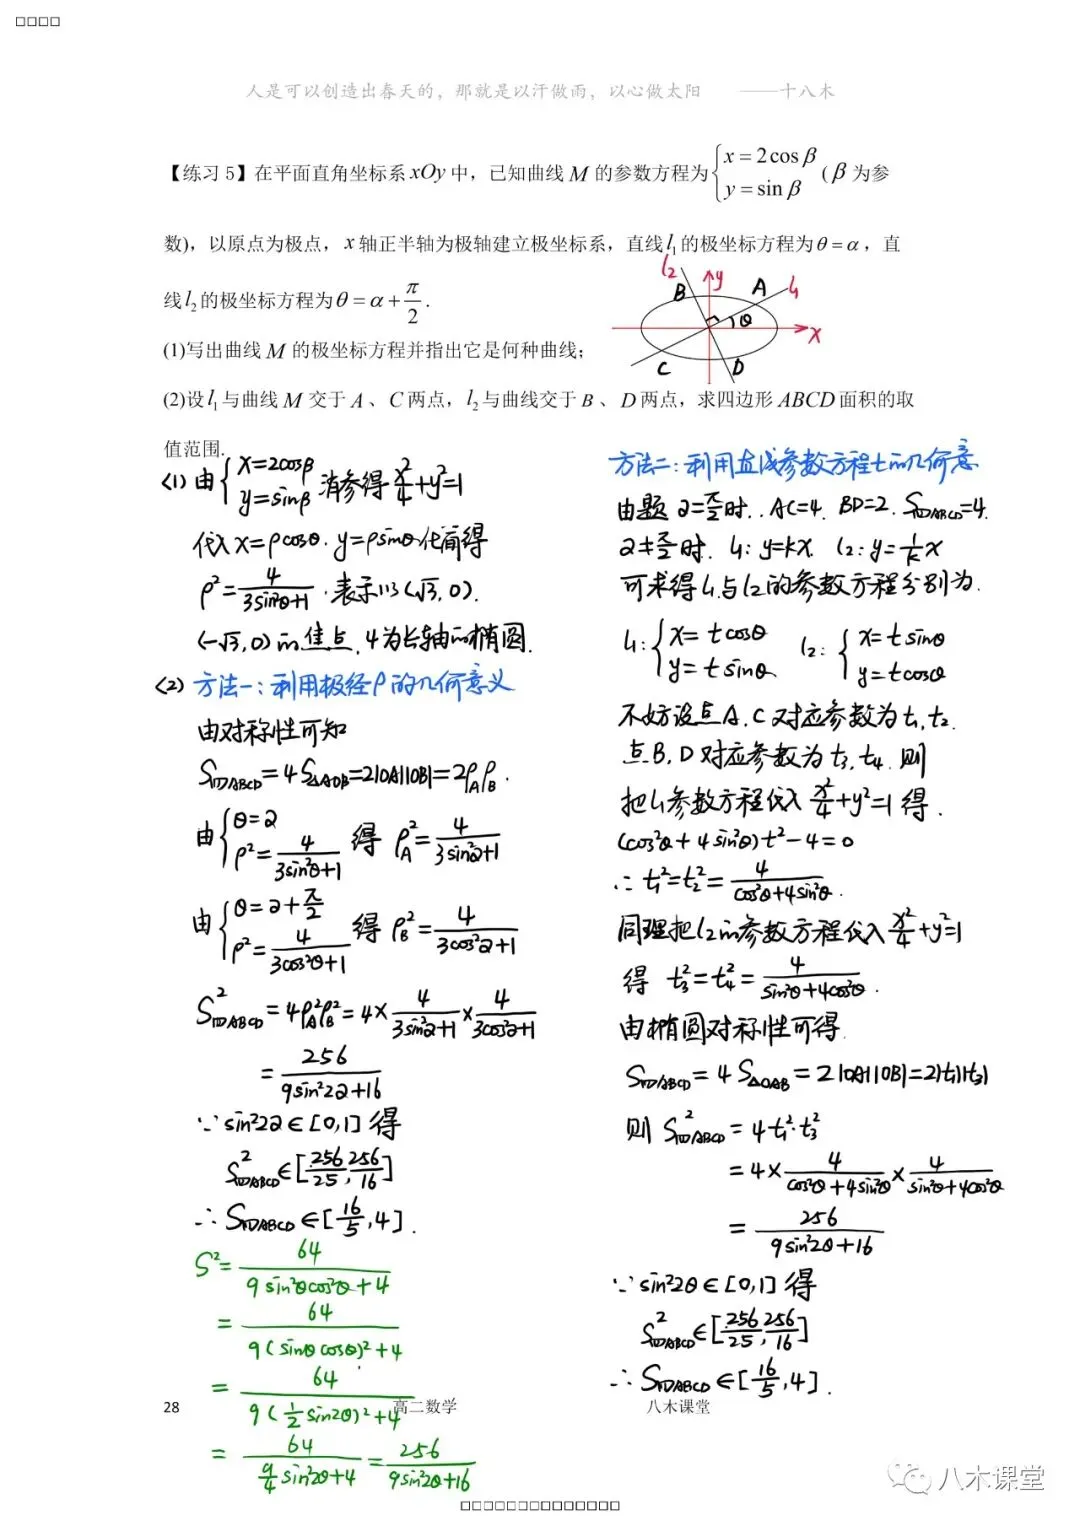 人是可以创造出春天的，那就是以汗做雨，以心做太阳 ——十八木
【练习 5】在平面直角坐标系 xOy 中，已知曲线 M 的参数方程为 { x = 2cos β
y = sin β (β 为参
数)，以原点为极点，x 轴正半轴为极轴建立极坐标系，直线 l₁ 的极坐标方程为 θ = α，直
线 l₂ 的极坐标方程为 θ = α + π/2 .
(1)写出曲线 M 的极坐标方程并指出它是何种曲线；
(2)设 l₁ 与曲线 M 交于 A 、C 两点，l₂ 与曲线交于 B 、D 两点，求四边形 ABCD 面积的取
值范围.
l₂ y A l₁
B θ
x
C D
(1) 由 { x=2cosβ
y=sinβ 消参得 x²/4+y²=1
代入 x=ρcosθ. y=ρsinθ 化简得
ρ²=4/(3sin²θ+1) . 表示以(√3,0).
(-√3,0)的焦点, 4为长轴的椭圆.
(2) 方法一:利用极径ρ的几何意义
由对称性可知
S四ABCD=4S△AOB=2|OA||OB|=2ρAρB .
由 { θ=α
ρ²=4/(3sin²θ+1) 得 ρA²=4/(3sin²α+1)
由 { θ=α+π/2
ρ²=4/(3cos²θ+1) 得 ρB²=4/(3cos²α+1)
S²四ABCD=4ρA²ρB²=4×4/(3sin²α+1)×4/(3cos²α+1)
=256/(9sin²2α+16)
∵ sin²2α∈[0,1] 得
S²四ABCD∈[256/25, 256/16]
∴ S四ABCD∈[16/5,4] .
S²=64/(9sin²θcos²θ+4)
=64/(9(sinθcosθ)²+4)
=64/(9(½sin2θ)²+4)
=64/(9/4 sin²2θ+4)=256/(9sin²2θ+16)
方法二:利用直线参数方程t的几何意
由题 α=π/2时.. AC=4. BD=2. S四ABCD=4.
α≠π/2时. l₁: y=kx. l₂: y=1/k x
可求得l₁与l₂的参数方程分别为.
l₁: { x=tcosθ
y=tsinθ l₂: { x=tsinθ
y=tcosθ
不妨设点A.C对应参数为t₁,t₂.
点B,D对应参数为t₃,t₄. 则
把l₁参数方程代入 x²/4+y²=1得.
(cos²θ+4sin²θ)t²-4=0
∴ t₁²=t₂²=4/(cos²θ+4sin²θ) .
同理把l₂的参数方程代入 x²/4+y²=1
得 t₃²=t₄²=4/(sin²θ+4cos²θ) .
由椭圆对称性可得.
S四ABCD=4S△OAB=2|OA||OB|=2|t₁||t₃|
则 S²四ABCD=4t₁²·t₃²
=4×4/(cos²θ+4sin²θ)×4/(sin²θ+4cos²θ)
=256/(9sin²2θ+16)
∵ sin²2θ∈[0,1] 得
S²四ABCD∈[256/25, 256/16]
∴ S四ABCD∈[16/5,4] .
28 高二数学 八木课堂
八木课堂